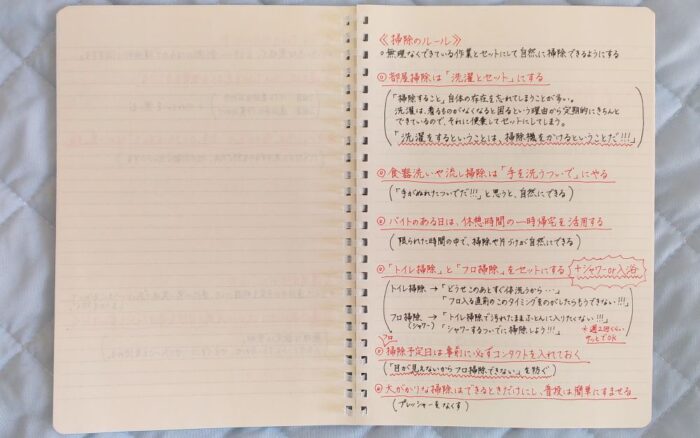 《掃除のルール》
○無理なくできている作業とセットにして自然に掃除できるようにする
◎部屋掃除は「洗濯とセット」にする
「掃除すること」自体の存在を忘れてしまうことが多い。
洗濯は、着るものがなくなると困るという理由から定期的にきちんと
できているので、それに便乗してセットにしてしまう。
「洗濯をするということは、掃除機をかけるということだ!!!」
◎食器洗いや流し掃除は「手を洗うついで」にやる
(「手がぬれたついでだ!!!」と思うと、自然にできる)
◎バイトのある日は、休憩時間の一時帰宅を活用する
(限られた時間の中で、掃除や片づけが自然にできる)
◎「トイレ掃除」と「フロ掃除」をセットにする +シャワーor入浴
トイレ掃除→「どうせこのあとすぐ体洗うから…」
「フロ入る直前のこのタイミングをのがしたらもうできない!!!」
フロ掃除→「トイレ掃除で汚れたままふとんに入りたくない!!!」
(シャワー) 「シャワーするついでに掃除しよう!!!」
*週2回くらい
サッとでOK
フロ
◎掃除予定日は事前に必ずコンタクトを入れておく
(「目が見えないからフロ掃除できない」を防ぐ)
◎大がかりな掃除はできるときだけにし、普段は簡単にすませる
(プレッシャーをなくす)